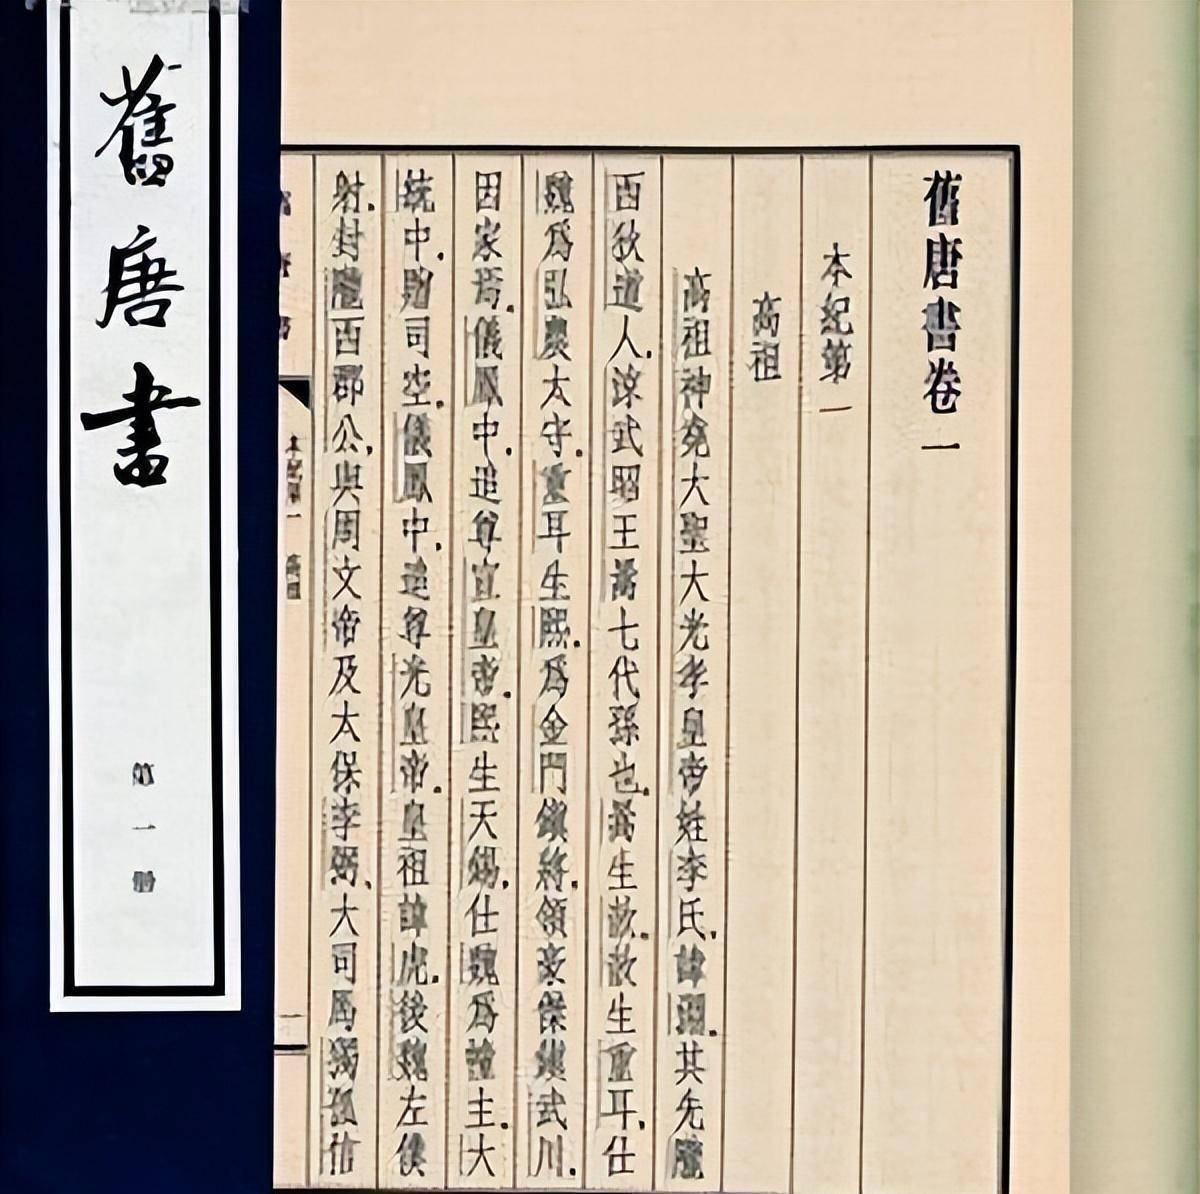 舊唐書卷一
本紀第一
高祖
高祖神堯大聖大光孝皇帝姓李氏，諱淵。其先隴
西狄道人，涼武昭王暠七代孫也。暠生歆。歆生重耳，仕
魏爲弘農太守。重耳生熙，爲金門鎮將，領豪傑鎮武川，
因家焉。儀鳳中，追尊宣皇帝。熙生天錫，仕魏爲幢主。大
統中，贈司空。儀鳳中，追尊光皇帝。皇祖諱虎，後魏左僕
射，封隴西郡公，與周文帝及太保李弼、大司馬獨孤信
本紀第一 高祖
一
舊唐書
第一冊